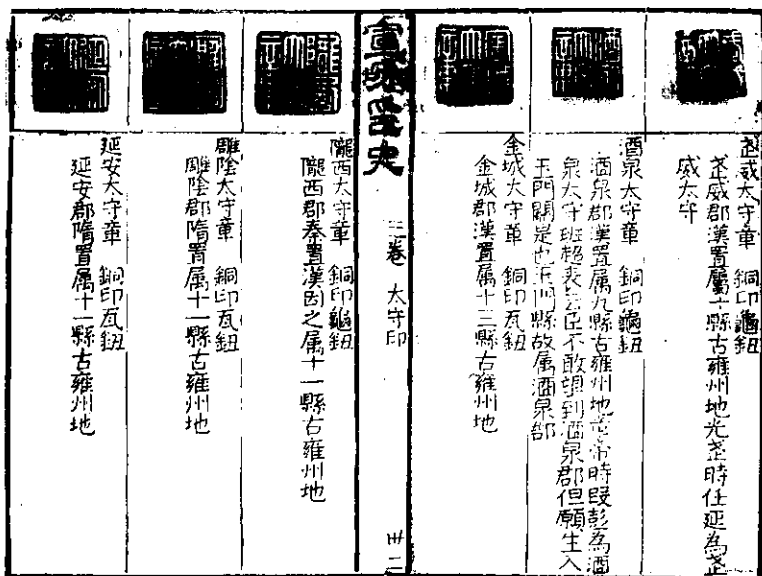 武威太守章　銅印龜鈕
武威郡漢置屬十縣古雍州地光武時任延為武
威太守
酒泉太守章　銅印龜鈕
酒泉郡漢置属九縣古雍州地 時段彭為酒
泉太守班超表云臣不敢望到酒泉郡但願生入
玉門關是也玉門縣故属酒泉郡
金城太守章　銅印瓦鈕
金城郡漢置属十三縣古雍州地
宣和印史
三卷　太守印
卅二
隴西太守章　銅印龜鈕
隴西郡秦置漢因之属十一縣古雍州地
雕陰太守章　銅印瓦鈕
雕陰郡隋置属十一縣古雍州地
延安太守章　銅印瓦鈕
延安郡隋置属十一縣古雍州地